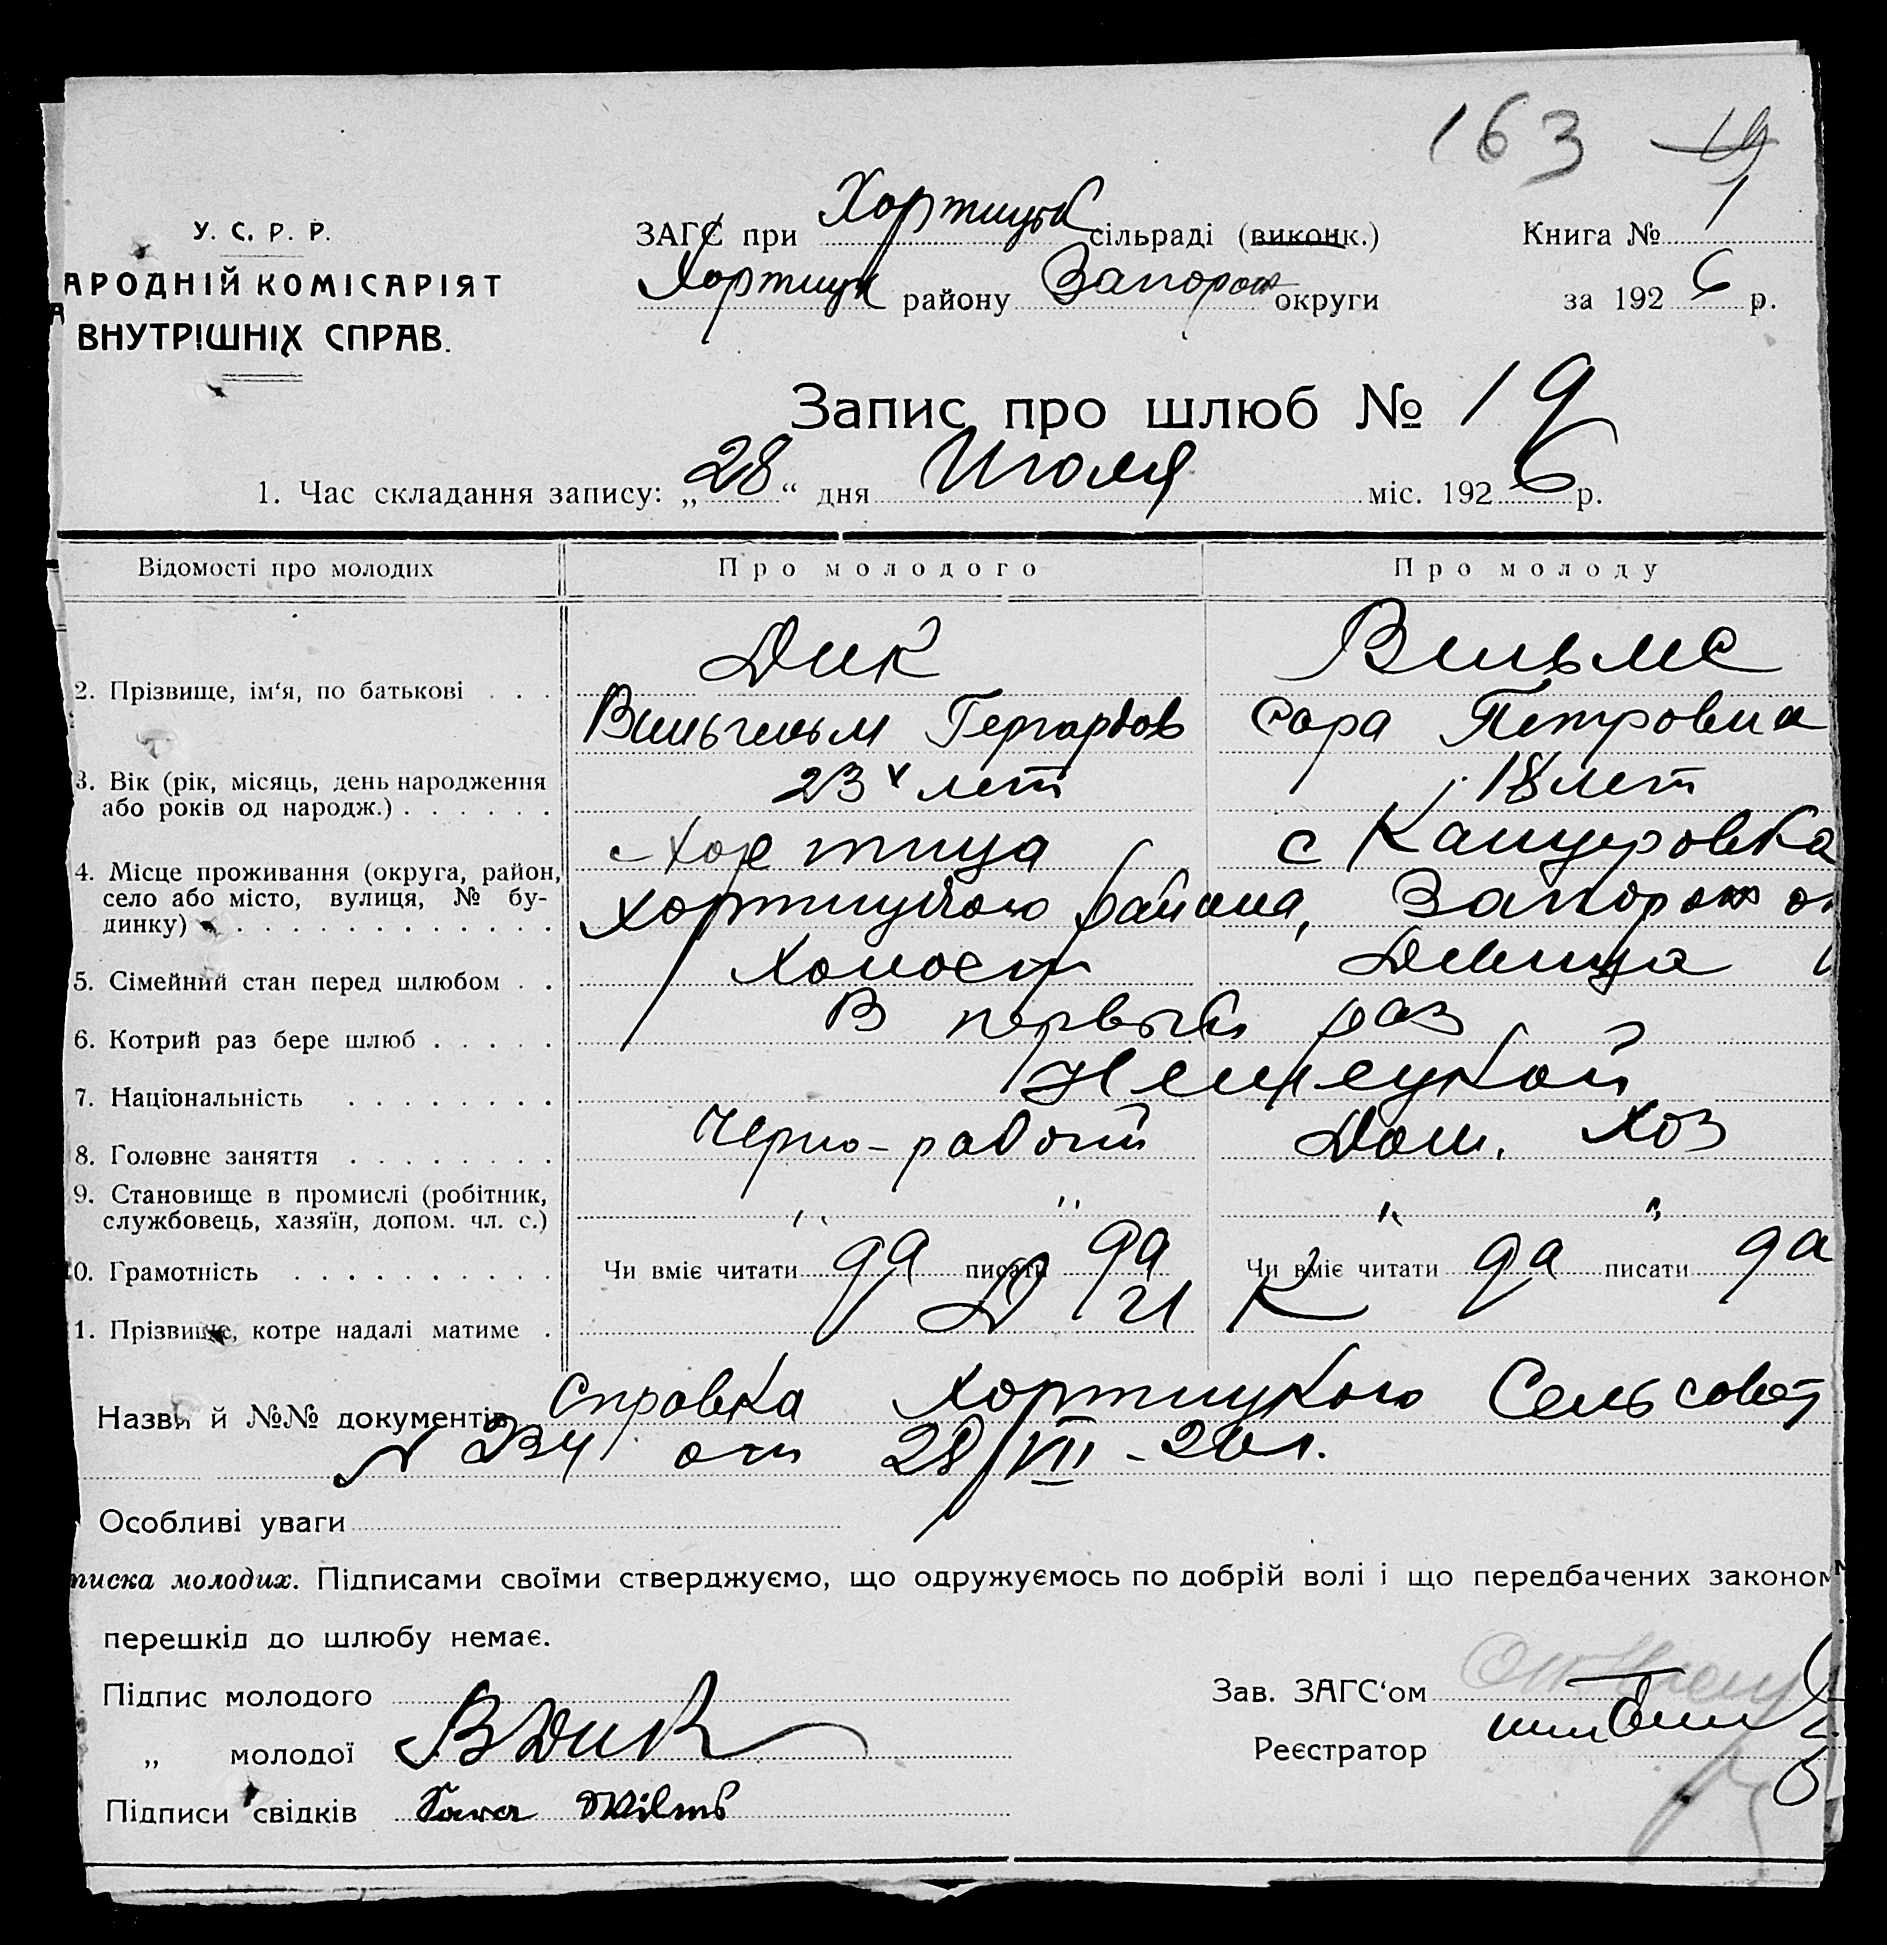 163 19
У. С. Р. Р.
АРОДНІЙ КОМІСАРІЯТ
ВНУТРІШНІХ СПРАВ.
ЗАГС при Хортицьк сільраді (виконк.) Книга № 1
Хортицк району Запорож округи за 192 6 р.
Запис про шлюб № 19
1. Час складання запису: „28“ дня Июля міс. 192 6 р.
Відомості про молодих Про молодого Про молоду
Дик Вильмс
2. Прізвище, ім‘я, по батькові . . .
Вильгельм Гергардов Сара Петровна
3. Вік (рік, місяць, день народження
або років од народж.) . . . . . . 23х лет 18 лет
с Хортица с Канцеровка
4. Місце проживання (округа, район,
село або місто, вулиця, № бу-
динку) . . . . . . . . . . . . . Хортицкого района, Запорож ок
5. Сімейний стан перед шлюбом . . Холост Девица
6. Котрий раз бере шлюб . . . . . В первый раз
7. Національність . . . . . . . . Немецкой
8. Головне заняття . . . . . . . . Черно-рабочий Дом. Хоз
9. Становище в промислі (робітник,
службовець, хазяїн, допом. чл. с.) " " " "
0. Грамотність . . . . . . . . . . . Чи вміє читати да писати да Чи вміє читати да писати да
1. Прізвище, котре надалі матиме . Д И К
Назви й №№ документів Справка Хортицкого Сельсовет
N 234 от 28/VII - 26 г.
Особливі уваги
писка молодих. Підписами своїми стверджуємо, що одружуємось по добрій волі і що передбачених законом
перешкід до шлюбу немає.
Підпис молодого Зав. ЗАГС‘ом
„ молодої ВДик Реєстратор
Підписи свідків Sara Wilms